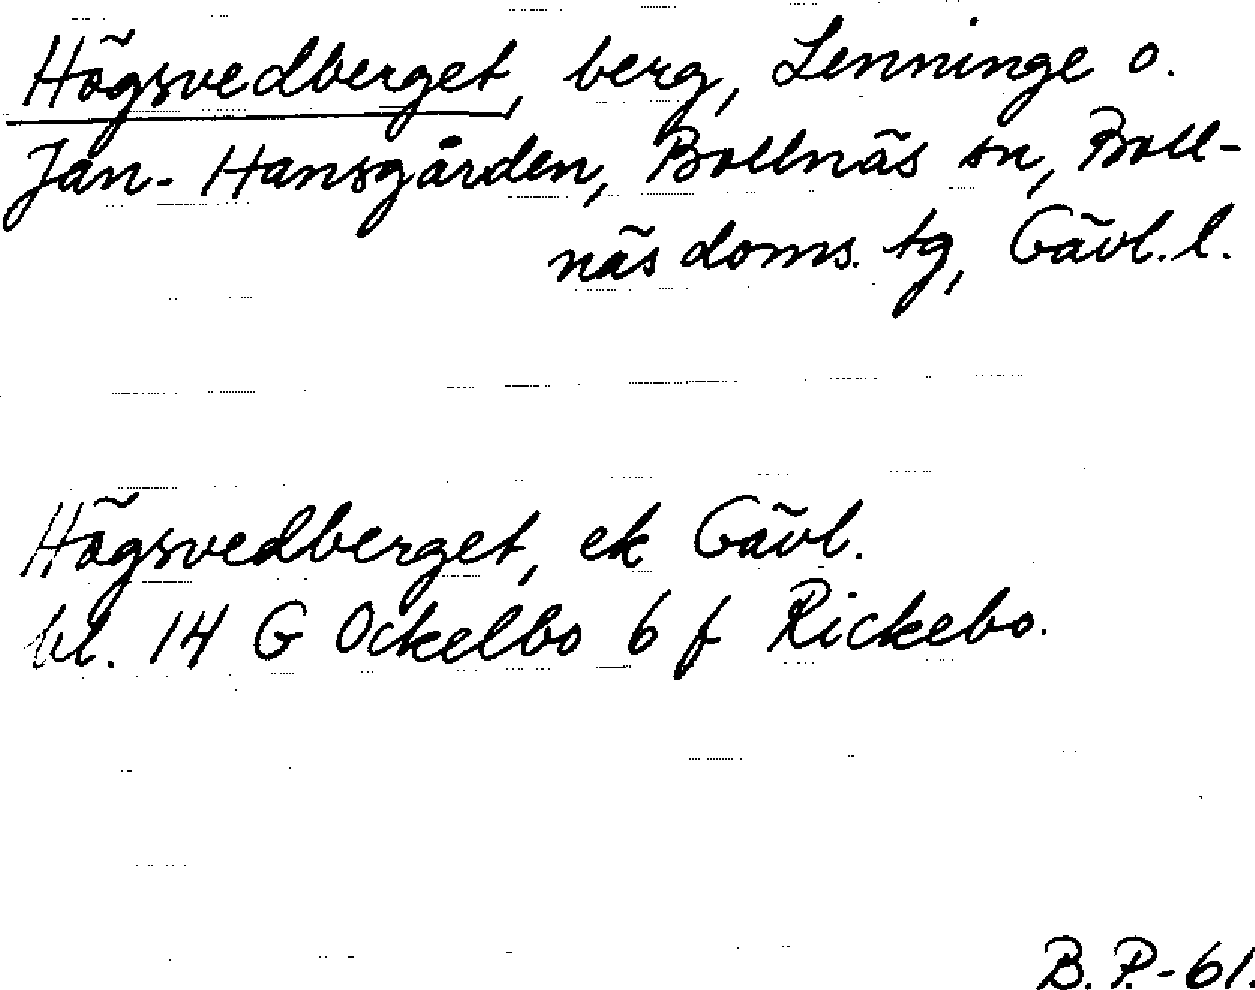 Högsvedberget, berg, Lenninge o.
Jan-Hansgården, Bollnäs sn, Boll-
näs doms. tg, Gävl. l.
Högsvedberget, ek Gävl.
bl. 14 G Ockelbo 6 f Rickebo.
B.P.-61.